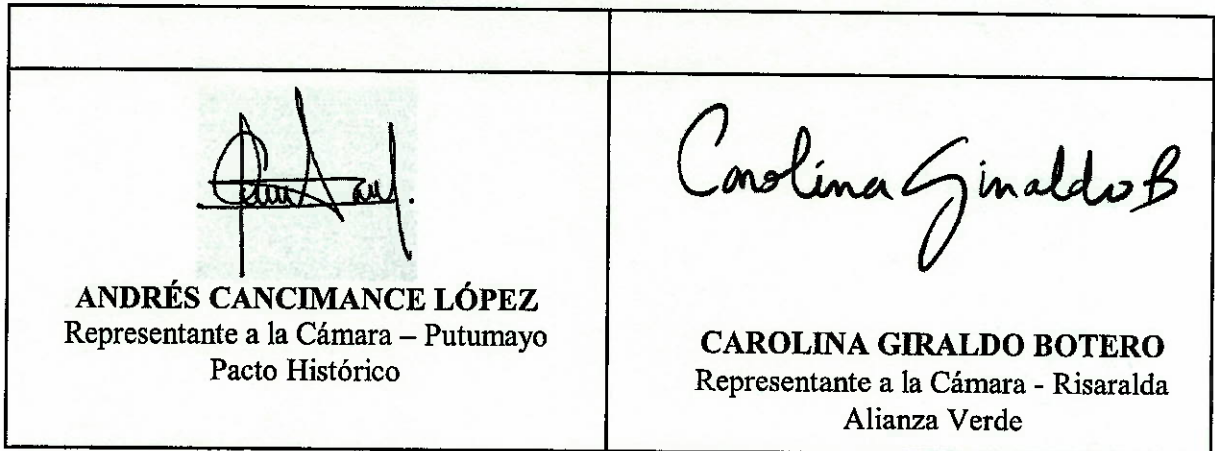 ANDRÉS CANCIMANCE LÓPEZ
Representante a la Cámara – Putumayo
Pacto Histórico
Carolina Giraldo B
CAROLINA GIRALDO BOTERO
Representante a la Cámara - Risaralda
Alianza Verde